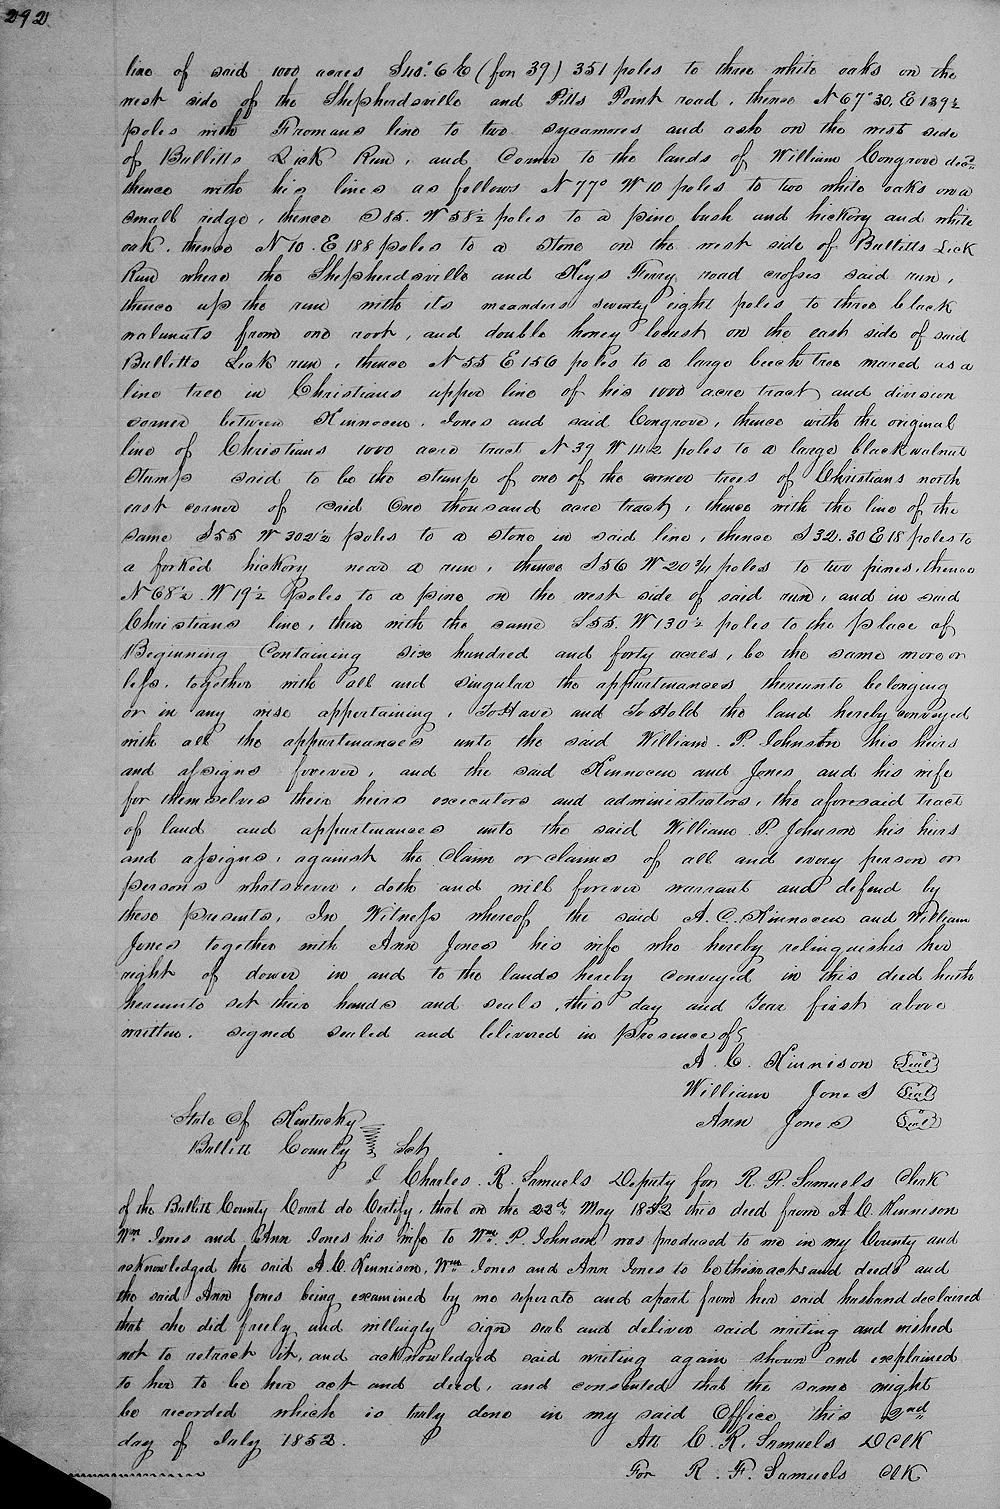 292
line of said 1000 acres S40° 6 E (for 39) 351 poles to three white oaks on the
west side of the Shepherdsville and Pitts Point road, thence N 67° 30, E 139½
poles with Fromans line to two sycamores and ash on the west side
of Bullitts Lick Run, and Corner to the lands of William Congrove decd
thence with his lines as follows N 77° W 10 poles to two white oaks on a
small ridge, thence S 85. W 58½ poles to a pine bush and hickory and white
oak. thence N 10. E 188 poles to a stone on the west side of Bullitts Lick
Run where the Shepherdsville and Keys Ferry road crosses said run,
thence up the run with its meanders seventy eight poles to three black
walnuts from one root, and double honey locust on the east side of said
Bullitts Lick run, thence N 55 E 156 poles to a large beech tree marked as a
line tree in Christians upper line of his 1000 acre tract and division
corner between Kinnocen, Jones and said Congrove, thence with the original
line of Christians 1000 acre tract N 39 W 142 poles to a large black walnut
Stump said to be the stump of one of the corner trees of Christians north
east corner of said One thousand acre tract, thence with the line of the
same S 55 W 302½ poles to a stone in said line, thence S 32. 30 E 18 poles to
a forked hickory near a run, thence S 56 W 20¾ poles to two pines, thence
N 68½ W 19½ poles to a pine on the west side of said run, and in said
Christians line, then with the same S 55. W 130½ poles to the place of
Beginning Containing six hundred and forty acres, be the same more or
less. together with all and singular the appurtenances thereunto belonging
or in any wise appertaining, To Have and To Hold the land hereby conveyed
with all the appurtenances unto the said William. P. Johnston his heirs
and assigns forever, and the said Kinnocen and Jones and his wife
for themselves their heirs executors and administrators, the aforesaid tract
of land and appurtenances unto the said William P. Johnson his heirs
and assigns, against the Claim or claims of all and every person or
persons whatsoever, doth and will forever warrant and defend by
these presents, In Witness whereof the said A. C. Kinnocen and William
Jones together with Ann Jones his wife who hereby relinquishes her
right of dower in and to the lands hereby conveyed in this deed hath
hereunto set their hands and seals, this day and Year first above
written. signed sealed and delivered in presence of
A. C. Kinnison Seal
William Jones Seal
Ann Jones Seal
State Of Kentucky
Bullitt County Sct
I Charles. R. Samuels Deputy for R. F. Samuels Clerk
of the Bullitt County Court do Certify, that on the 22d May 1852 this deed from A. C. Kennison
Wm Jones and Ann Jones his wife to Wm. P. Johnson was produced to me in my County and
acknowledged the said A. C. Kennison, Wm Jones and Ann Jones to be their acts and deeds and
the said Ann Jones being examined by me seperate and apart from her said husband declaired
that she did freely and willingly sign seal and deliver said writing and wished
not to retract it, and acknowledged said writing again shown and explained
to her to be her act and deed, and consented that the same might
be recorded which is truly done in my said Office this 2nd
day of July 1852.
Att C. R. Samuels D Clk
For R. F. Samuels Clk